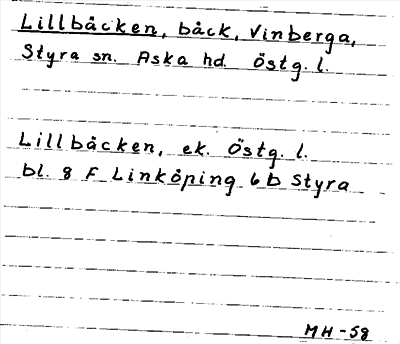 Lillbäcken, bäck, Vinberga,
Styra sn. Aska hd. Östg. l.
Lillbäcken, ek. Östg. l.
bl. 8 F Linköping 6b Styra
MH-58